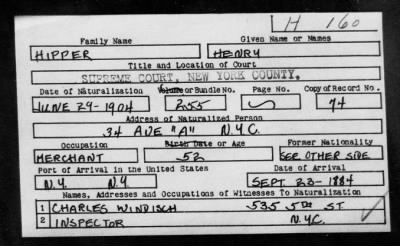 H 160
Family Name Given Name or Names
HIPPER HENRY
Title and Location of Court
SUPREME COURT, NEW YORK COUNTY.
Date of Naturalization Volume or Bundle No. Page No. Copy of Record No.
JUNE 29-1904 255 74
Address of Naturalized Person
34 AVE "A" N.Y.C.
Occupation Birth Date or Age Former Nationality
MERCHANT 52 SEE OTHER SIDE
Port of Arrival in the United States Date of Arrival
N.Y. N.Y SEPT. 23-1884
Names, Addresses and Occupations of Witnesses To Naturalization
1 CHARLES WINDISCH 535 5TH ST
2 INSPECTOR N.Y.C.